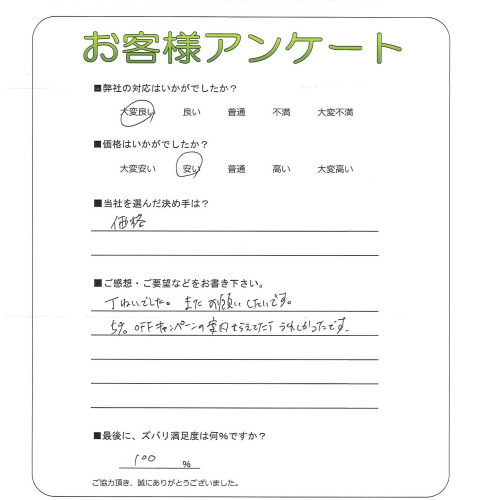 お客様アンケート
■弊社の対応はいかがでしたか？
大変良い 良い 普通 不満 大変不満
■価格はいかがでしたか？
大変安い 安い 普通 高い 大変高い
■当社を選んだ決め手は？
価格
■ご感想・ご要望などをお書き下さい。
丁ねいでした。 また お願いしたいです。
5% OFFキャンペーンの案内もらえてたらうれしかったです。
■最後に、ズバリ満足度は何%ですか？
100 %
ご協力頂き、誠にありがとうございました。